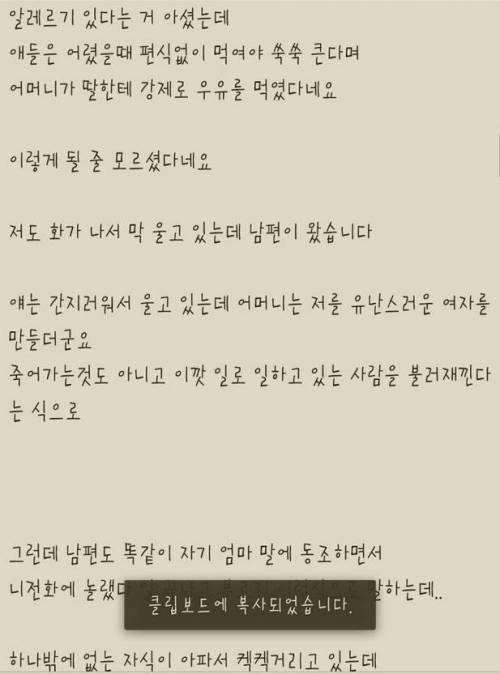 알레르기 있다는 거 아셨는데
애들은 어렸을때 편식없이 먹여야 쑥쑥 큰다며
어머니가 딸한테 강제로 우유를 먹였다네요
이렇게 될 줄 모르셨다네요
저도 화가 나서 막 울고 있는데 남편이 왔습니다
얘는 간지러워서 울고 있는데 어머니는 저를 유난스러운 여자를
만들더군요
죽어가는것도 아니고 이깟 일로 일하고 있는 사람을 불러재낀다
는 식으로
그런데 남편도 똑같이 자기 엄마 말에 동조하면서
니전화에 놀랬다 말하는데..
클립보드에 복사되었습니다.
하나밖에 없는 자식이 아파서 켁켁거리고 있는데